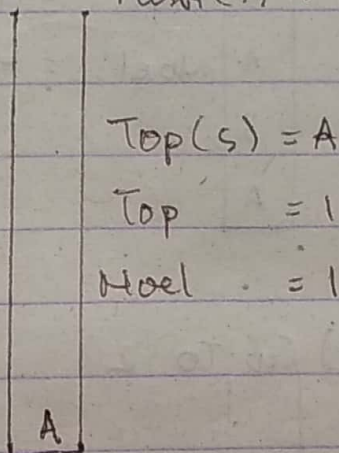 Top(s) = A
Top = 1
Noel = 1
A